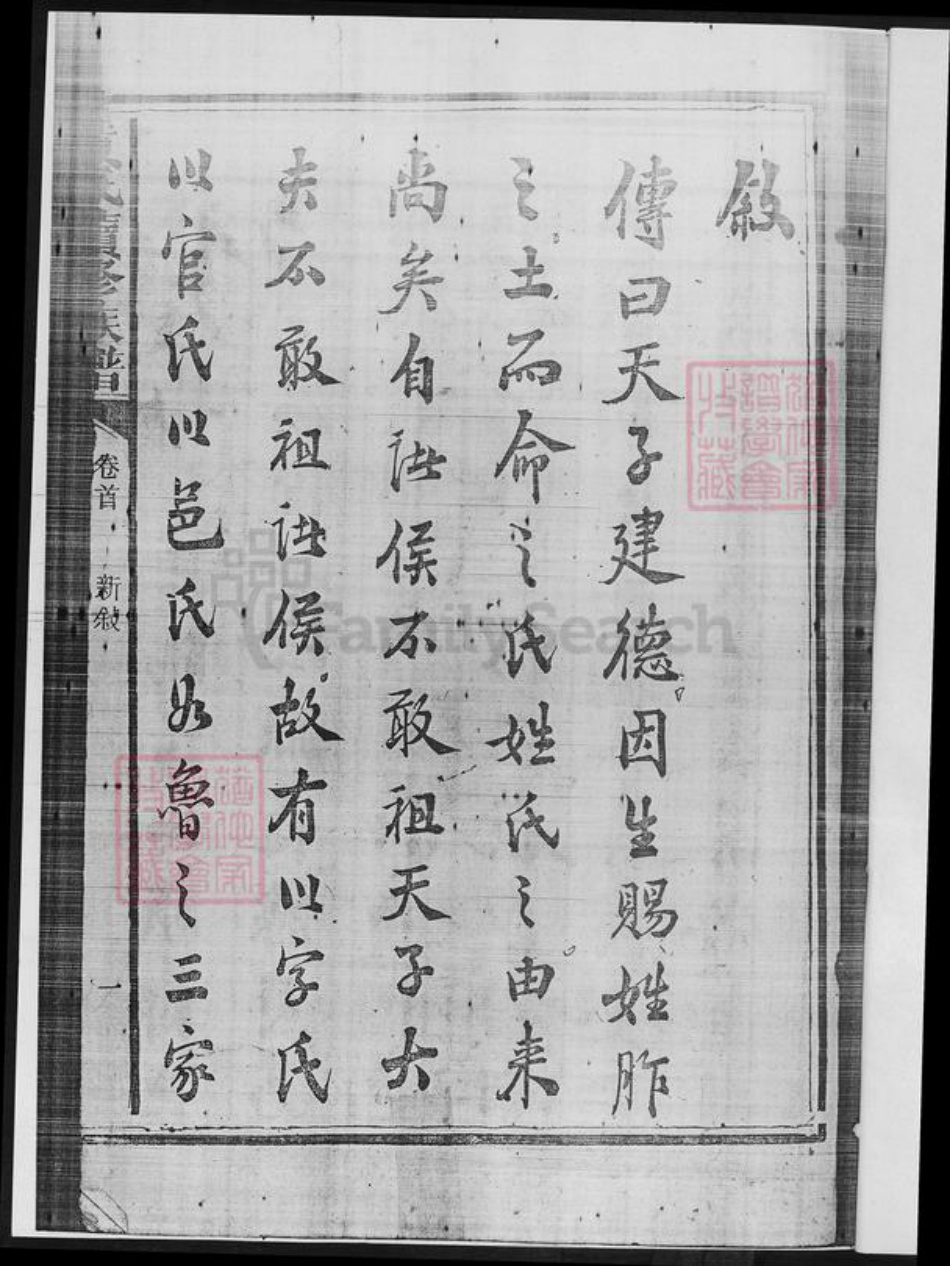 敘
傳曰天子建德因生賜姓胙
之土而命之氏姓氏之由来
尚矣自诸侯不敢祖天子大
夫不敢祖诸侯故有以字氏
以官氏以邑氏如魯之三家
氏續修族譜
卷首
新敘
一
FamilySearch